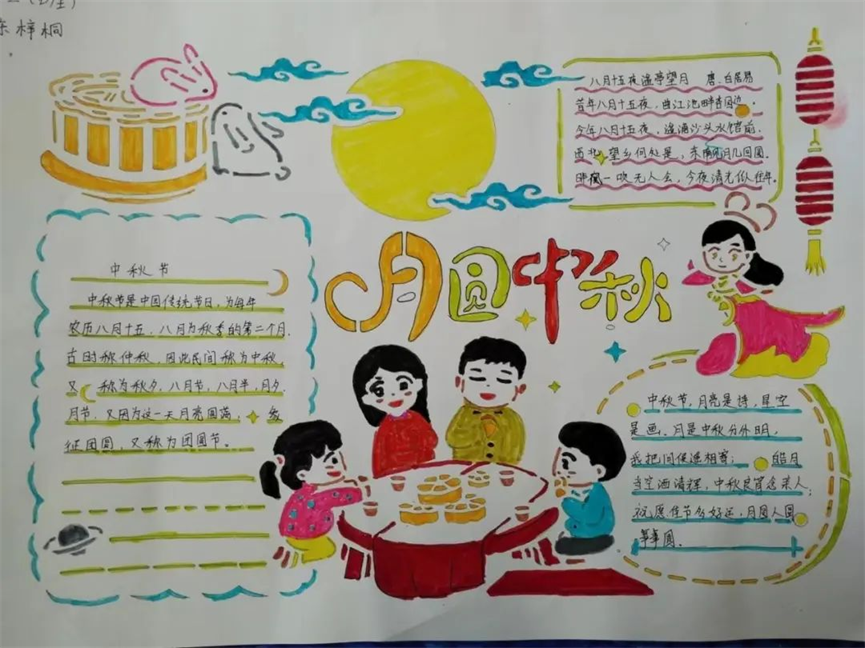 梓桐
月圆中秋
八月十五夜湓亭望月 唐、白居易
昔年八月十五夜，曲江池畔杏园边。
今年八月十五夜，湓浦沙头水馆前。
西北望乡何处是，东南见月几回圆。
昨风一吹无人会，今夜清光似往年。
中秋节
中秋节是中国传统节日，为每年
农历八月十五，八月为秋季的第二个月，
古时称仲秋，因此民间称为中秋，
又称为秋夕，八月节，八月半，月夕，
月节，又因为这一天月亮圆满，象
征团圆，又称为团圆节。
中秋节，月亮是诗，星空
是画。月是中秋分外明，
我把问候遥相寄；皓月
当空洒清辉，中秋良宵念亲人；
祝愿佳节多好运，月圆人圆
事事圆。